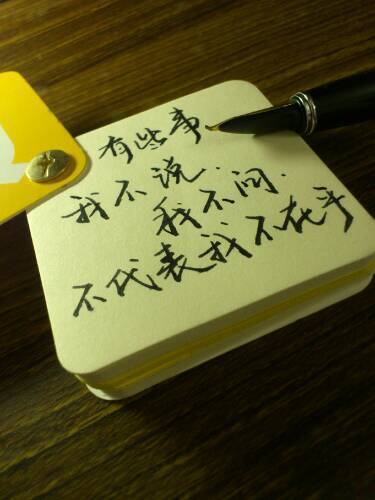 有些事、
我不说.
我不问.
不代表我不在乎